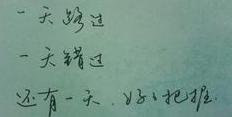 一天路过
一天错过
还有一天、好好把握.